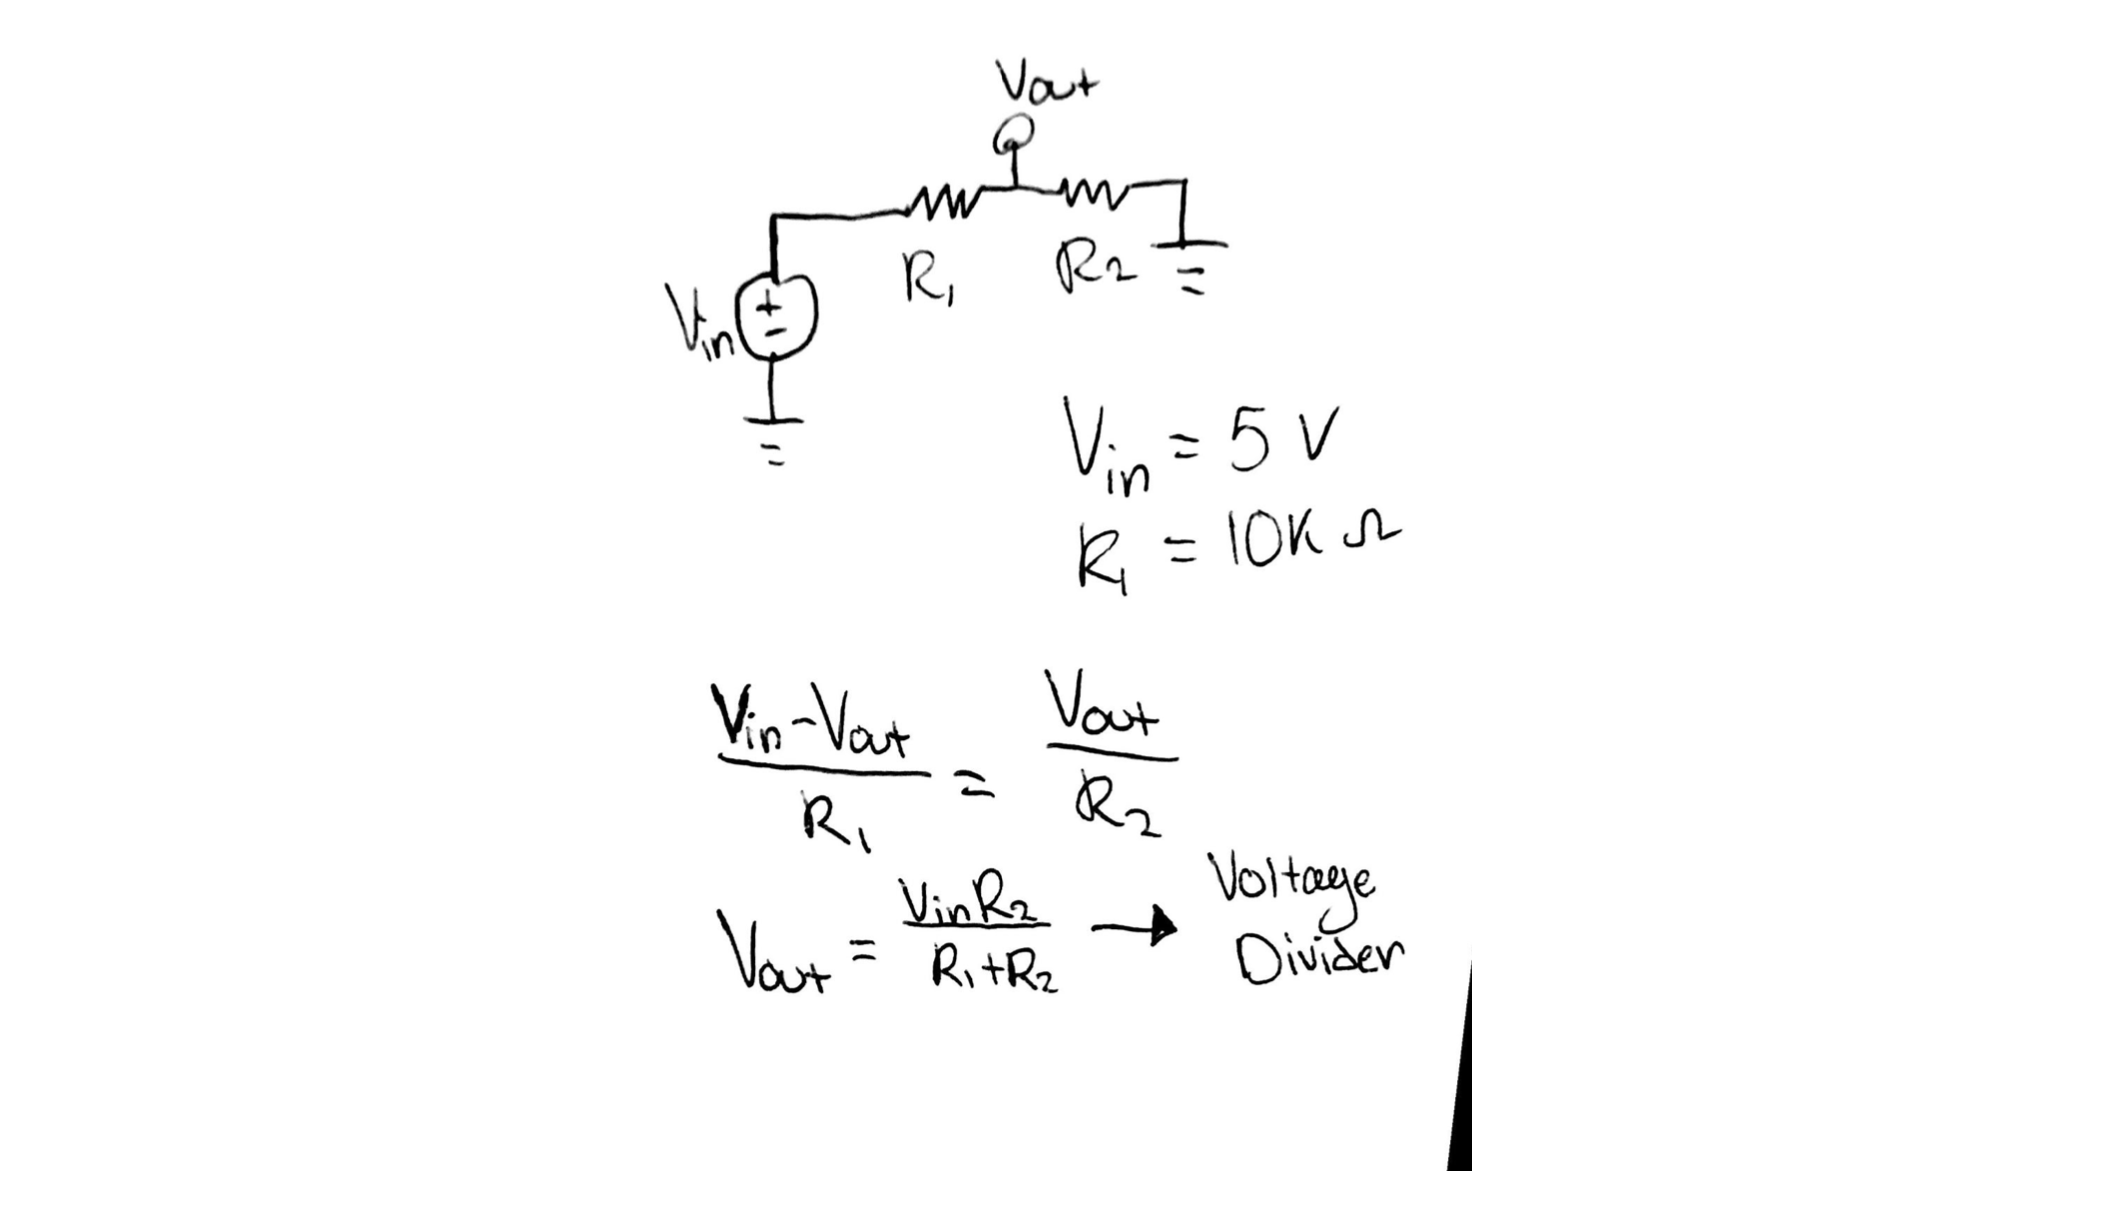 Vout
R₁ R₂
Vin + -
Vin = 5 V
R₁ = 10K Ω
Vin - Vout / R₁ = Vout / R₂
Vout = VinR₂ / R₁+R₂ → Voltage Divider